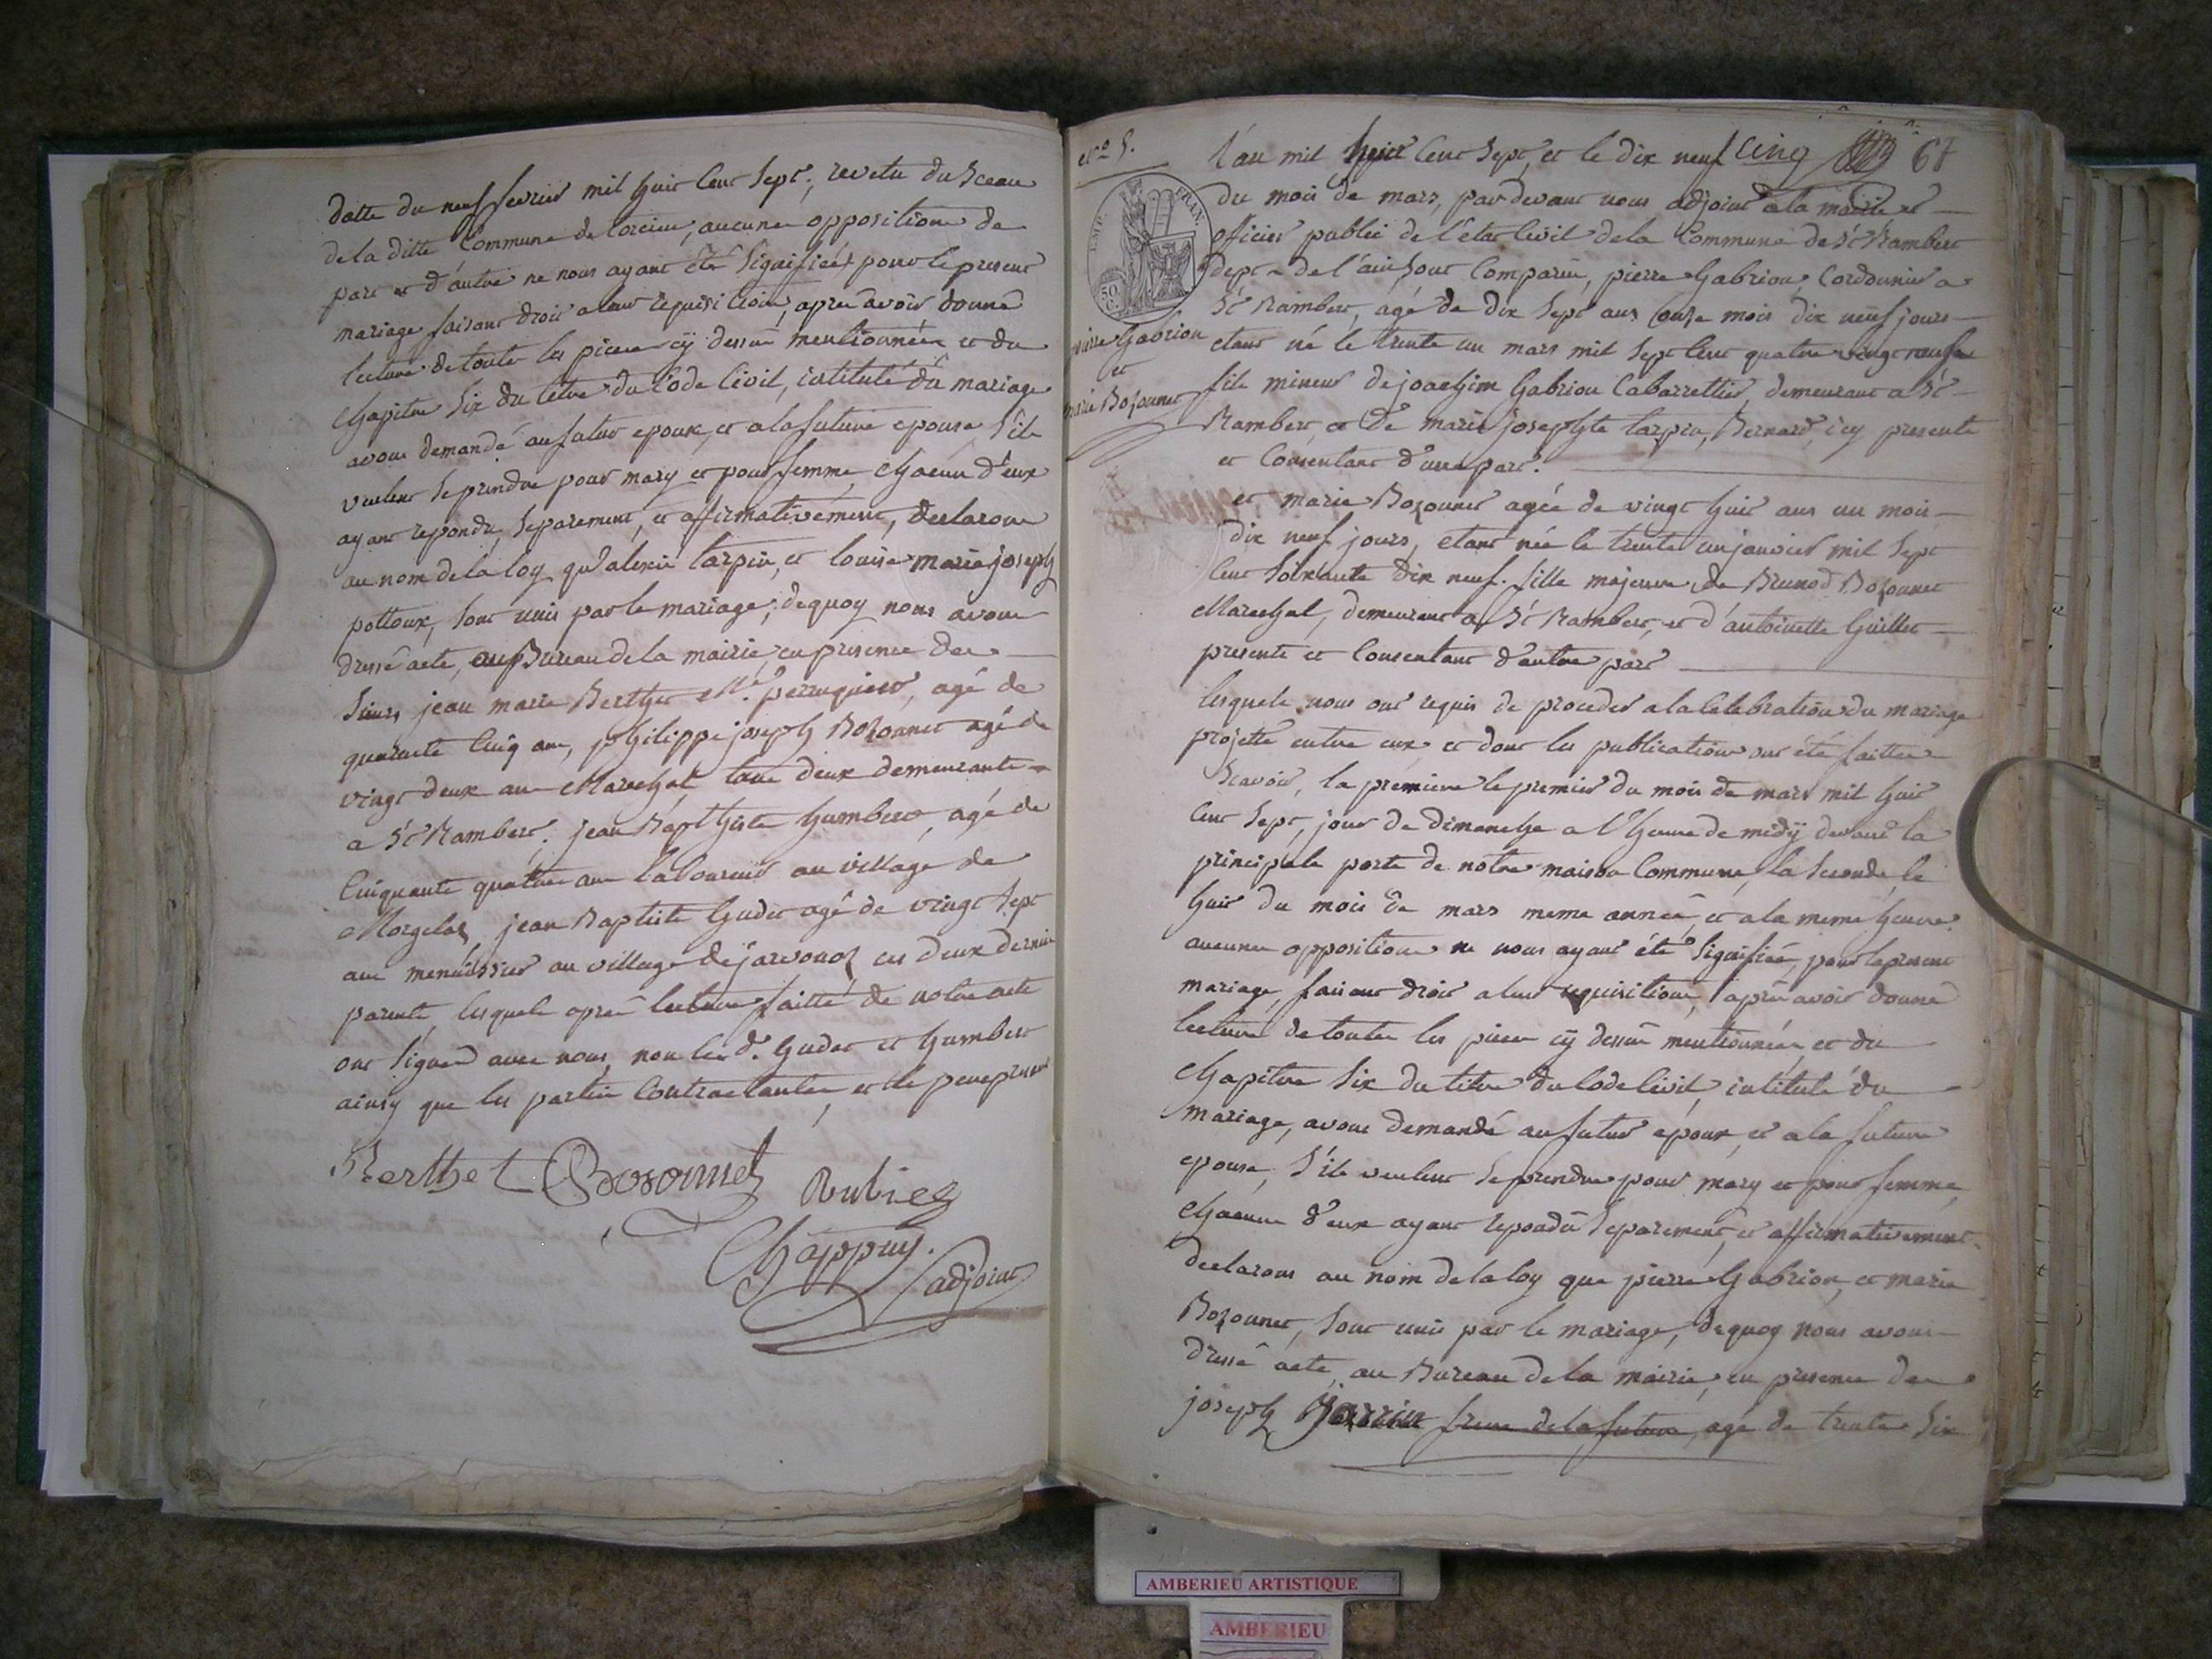 datte du neuf fevrier mil huit Cent Sept, revetu du Sceau
de la ditte Commune de torcieu, aucune opposition de
part et d'autre ne nous ayant été Signifiéé pour le present
mariage faisant droit a leur requisition, apres avoir donné
lecture de toutes les pieces cy dessus mentionnées et du
Chapitre Six du titre du Code Civil, intitulé du mariage
avons demandé au futur epoux, et a la future epouse S'ils
veulent Se prendre pour mary et pour femme, Chacun d'eux
ayant repondu, Separement, et affirmativement, Declarons
au nom de la loy qu'alexis tarpin, et louise marie joseph
pottoux, Sont unis par le mariage, dequoy nous avons
dressé acte, au Bureau de la mairie, en presence des
Sieurs jean marie Berthet Md. perruquier, agé de
quarante Cinq ans, philippe joseph Bozonnet agé de
vingt deux ans Marechal, tous deux demeurants
a St Rambert. jean Bapthiste humbert, agé de
Cinquante quatre ans laboureur au village de
Morgelas, jean Baptiste Gudet agé de vingt Sept
ans menuissier au village de javornoz ces deux dernier
parents, lesquels après lecture faitte de notre acte
ont Signé avec nous, non les d. Gudet et humbert
ainsy que les parties Contractantes, et le pere present
Berthet Bosonnet Rubiez
Chappuy.
adjoint
No 5.
67
l'an mil huit Cent Sept, et le dix neuf Cinq
du mois de mars, par devant nous adjoint a la mairie et
officier public de l'état Civil de la Commune de St Rambert
dept de l'ain Sont Comparu, pierre Gabrion, Cordonnier a
St Rambert, agé de dix Sept ans onze mois dix neuf jours
etant né le trente un mars mil Sept Cent quatre vingt neuf
EMP. FRAN.
50 C.
pierre Gabrion
et
marie Bozonnet
fils mineur de joachim Gabrion Cabarettier, demeurant a St
Rambert, et de marie josephte tarpin, Bernard, icy presente
et Consentant d'une part.
et marie Bozonnet agée de vingt huit ans un mois
dix neuf jours, etant née le trente un janvier mil Sept
Cent Soixante dix neuf. fille majeure de Brunod Bozonnet
Marechal, demeurant a St Rambert, et d'antoinette Guillet
presente et Consentant d'autre part
lesquels nous ont requis de proceder a la Celebration du mariage
projetté entre eux, et dont les publications ont été faittes
Scavoir, la premiere le premier du mois de mars mil huit
Cent Sept, jour de dimanche a l'heure de midÿ devant la
principale porte de notre maison Commune, la Seconde, le
huit du mois de mars meme année, et a la meme heure.
aucune opposition ne nous ayant été Signifiéé, pour le present
mariage, faisant droit a leur requisition, après avoir donné
lecture de toutes les pieces cÿ dessus mentionnées, et du
Chapitre Six du titre du Code Civil, intitulé du
mariage, avons demandé au futur epoux, et a la future
epouse, S'ils veulent Se prendre pour mary et pour femme,
Chacun d'eux ayant repondu Separement, et affirmativement
declarons au nom de la loy que pierre Gabrion, et marie
Bozonnet, Sont unis par le mariage, dequoy nous avons
dressé acte, au Bureau de la mairie, en presence de
joseph Jarrin frere de la future, agé de trente Six
AMBERIEU ARTISTIQUE
AMBERIEU